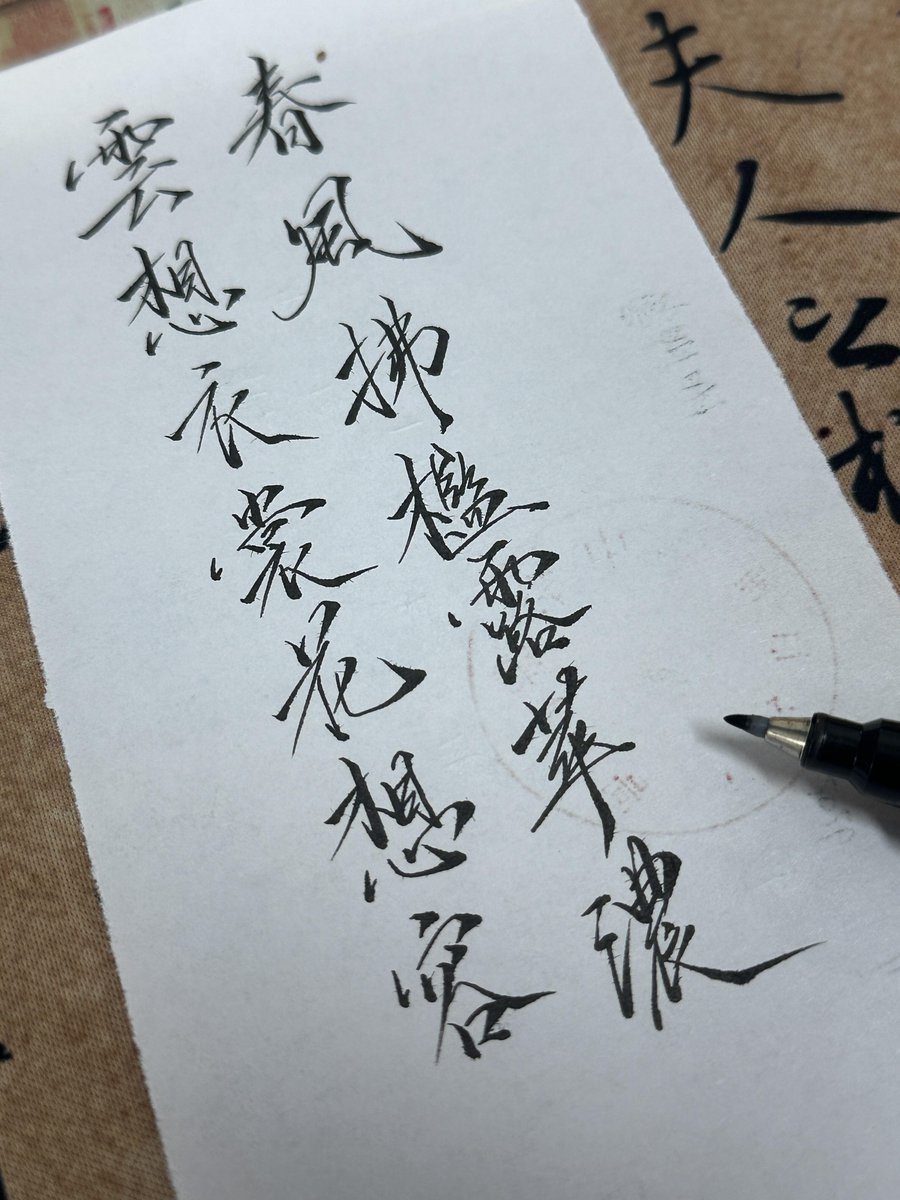 雲想衣裳花想容
春風拂檻露華濃
夫人